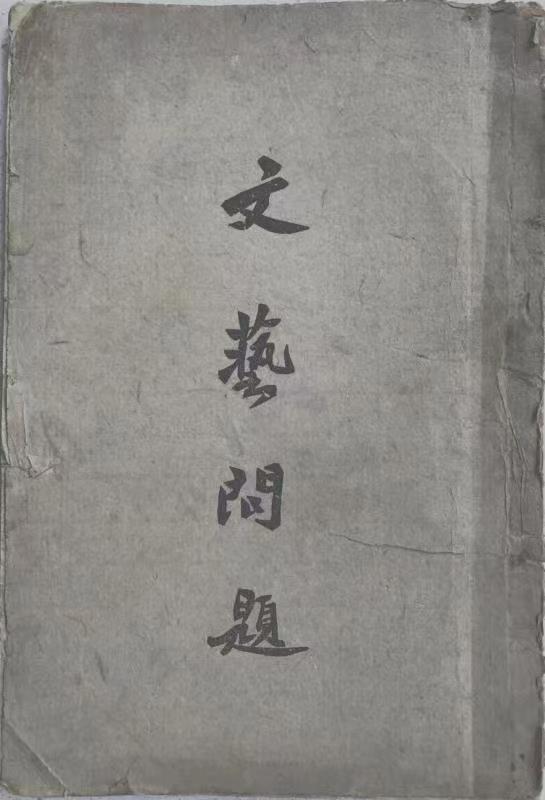 文藝問題